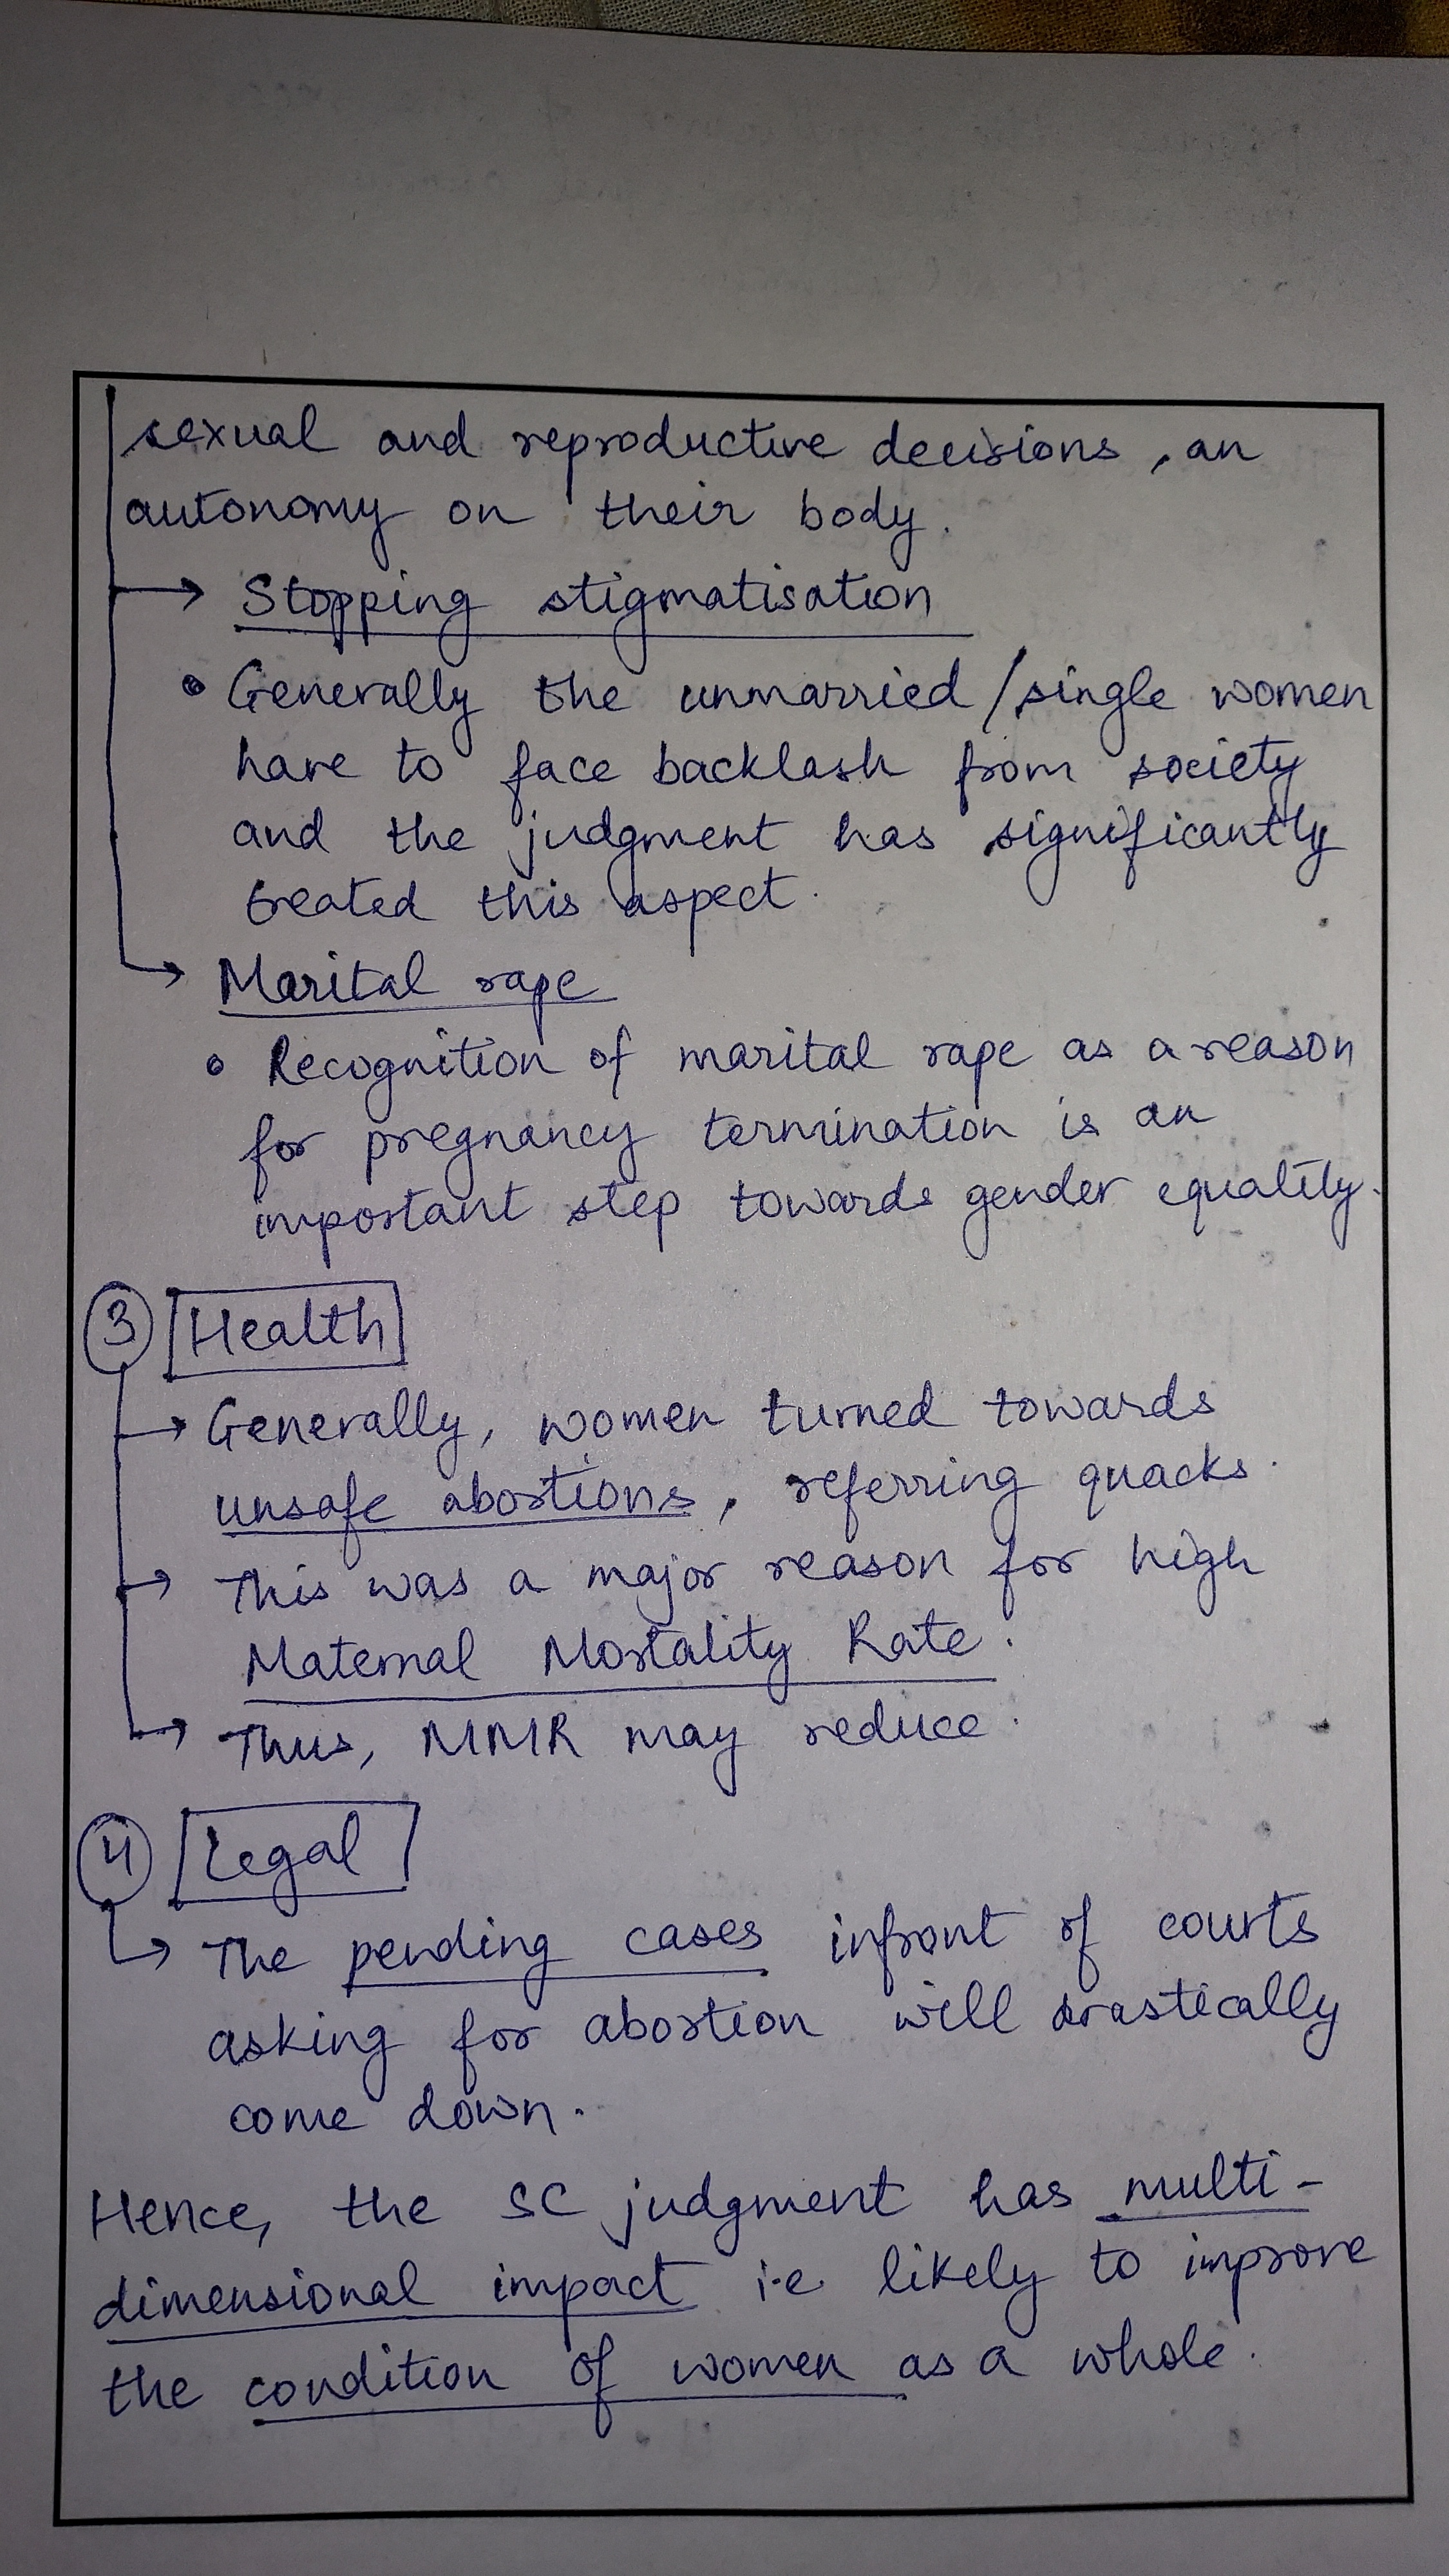 sexual and reproductive decisions, an
autonomy on their body.
→ Stopping stigmatisation
• Generally the unmarried/single women
have to face backlash from society
and the judgment has significantly
treated this aspect.
→ Marital rape
• Recognition of marital rape as a reason
for pregnancy termination is an
important step towards gender equality.
3 Health
→ Generally, women turned towards
unsafe abortions, referring quacks.
→ This was a major reason for high
Maternal Mortality Rate.
→ Thus, MMR may reduce.
4 Legal
→ The pending cases infront of courts
asking for abortion will drastically
come down.
Hence, the SC judgment has multi-
dimensional impact i.e. likely to improve
the condition of women as a whole.